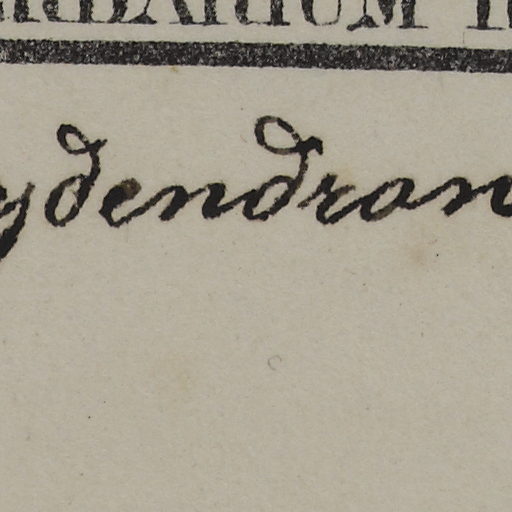 HERBARIUM
ydendron